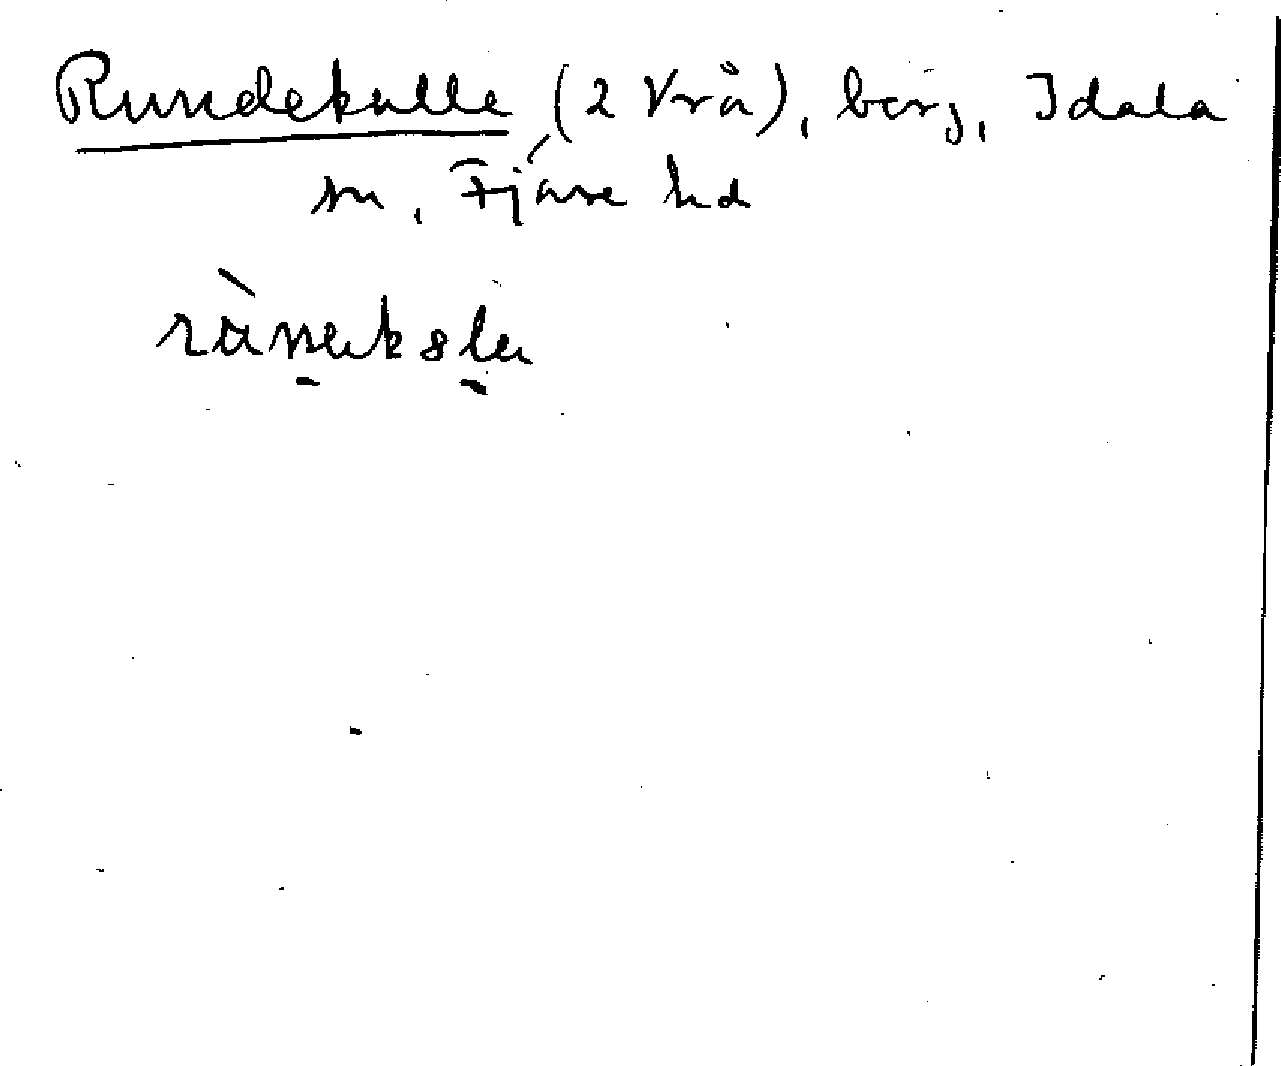 Rundekulle (2 Vrå), berg, Idala
sn, Fjäre hd